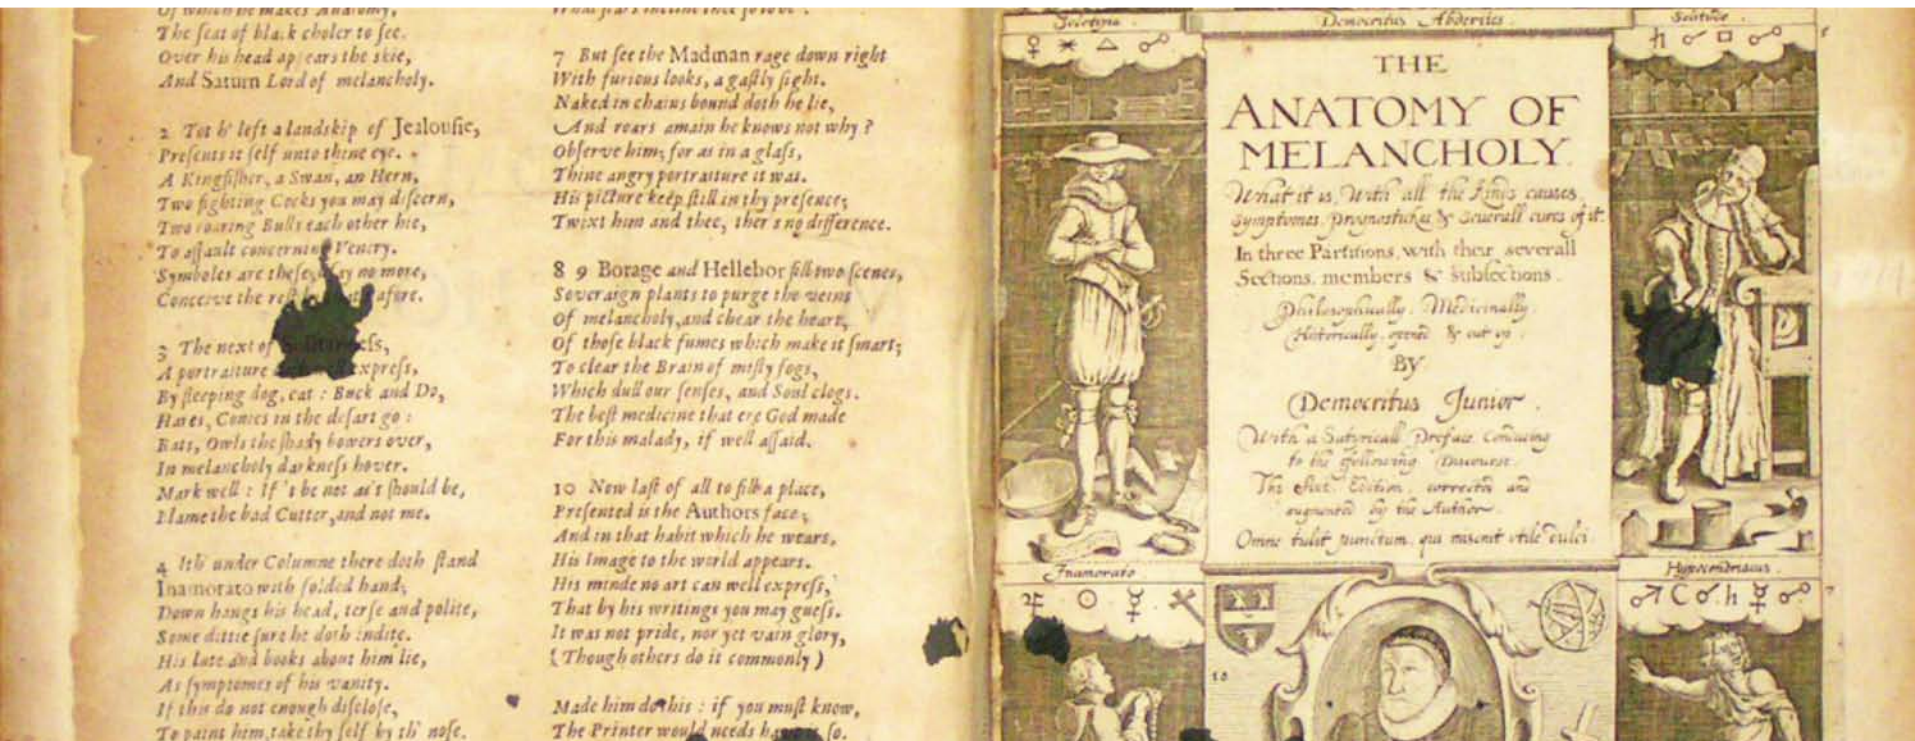 Of which he makes Anatomy,
The seat of black choler to see.
Over his head appears the skie,
And Saturn Lord of melancholy.
2 To th' left a landskip of Jealousie,
Presents it self unto thine eye.
A Kingfisher, a Swan, an Hern,
Two fighting Cocks you may discern,
Two roaring Bulls each other hie,
To assault concerning Venery.
Symboles are these, say no more,
Conceive the rest by that's afore.
3 The next of Solitariness,
A portraiture express,
By sleeping dog, cat : Buck and Do,
Hares, Conies in the desart go :
Bats, Owls the shady bowers over,
In melancholy darkness hover.
Mark well : If 't be not as't should be,
Blame the bad Cutter, and not me.
4 Ith' under Columne there doth stand
Inamorato with folded hand;
Down hangs his head, terse and polite,
Some dittie sure he doth indite.
His lute and books about him lie,
As symptomes of his vanity.
If this do not enough disclose,
To paint him, take thy self by th' nose.
7 But see the Madman rage down right
With furious looks, a gastly sight.
Naked in chains bound doth he lie,
And roars amain he knows not why ?
Observe him; for as in a glass,
Thine angry portraiture it was.
His picture keep still in thy presence;
Twixt him and thee, ther's no difference.
8 9 Borage and Hellebor fill two scenes,
Soveraign plants to purge the veins
Of melancholy, and chear the heart,
Of those black fumes which make it smart;
To clear the Brain of misty fogs,
Which dull our senses, and Soul clogs.
The best medicine that ere God made
For this malady, if well assaid.
10 Now last of all to fill a place,
Presented is the Authors face;
And in that habit which he wears,
His Image to the world appears.
His minde no art can well express,
That by his writings you may guess.
It was not pride, nor yet vain glory,
(Though others do it commonly)
Made him do this : if you must know,
The Printer would needs have it so.
Zelotypia.
Democritus Abderites.
Solitudo.
THE
ANATOMY OF
MELANCHOLY.
What it is, With all the kinds causes,
symptomes, prognostickes & severall cures of it.
In three Partitions, with their severall
Sections, members & subsections.
Philosophically, Medicinally,
Historically, opened & cut up.
BY.
Democritus Junior.
With a Satyricall Preface, Conducing
to the following Discourse.
The Sixt Edition, corrected and
augmented by the Author.
Omne tulit punctum, qui miscuit utile dulci.
Inamorato
Hypocondriacus.
10
7